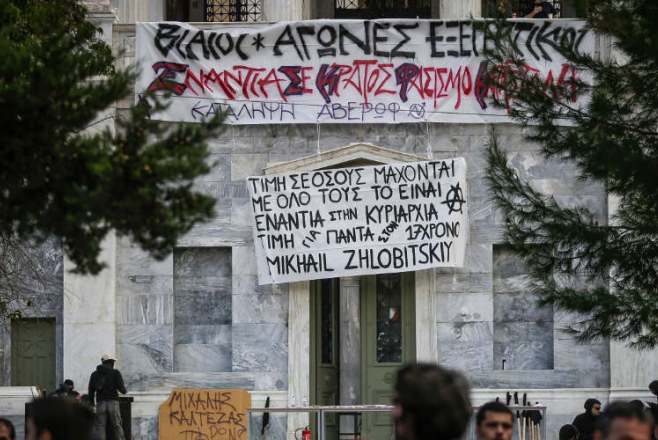 ΒΙΑΙΟΙ * ΑΓΩΝΕΣ ΕΞΕΓΕΡΤΙΚΟΙ
ΕΝΑΝΤΙΑ ΣΕ ΚΡΑΤΟΣ ΦΑΣΙΣΜΟ
ΚΑΤΑΛΗΨΗ ΑΒΕΡΩΦ
ΤΙΜΗ ΣΕ ΟΣΟΥΣ ΜΑΧΟΝΤΑΙ
ΜΕ ΟΛΟ ΤΟΥΣ ΤΟ ΕΙΝΑΙ
ΕΝΑΝΤΙΑ ΣΤΗΝ ΚΥΡΙΑΡΧΙΑ
ΤΙΜΗ ΓΙΑ ΠΑΝΤΑ ΣΤΟΝ 17ΧΡΟΝΟ
MIKHAIL ZHLOBITSKIY
ΜΙΧΑΛΗΣ
ΚΑΛΤΕΖΑΣ
ΠΑΡΩΝ